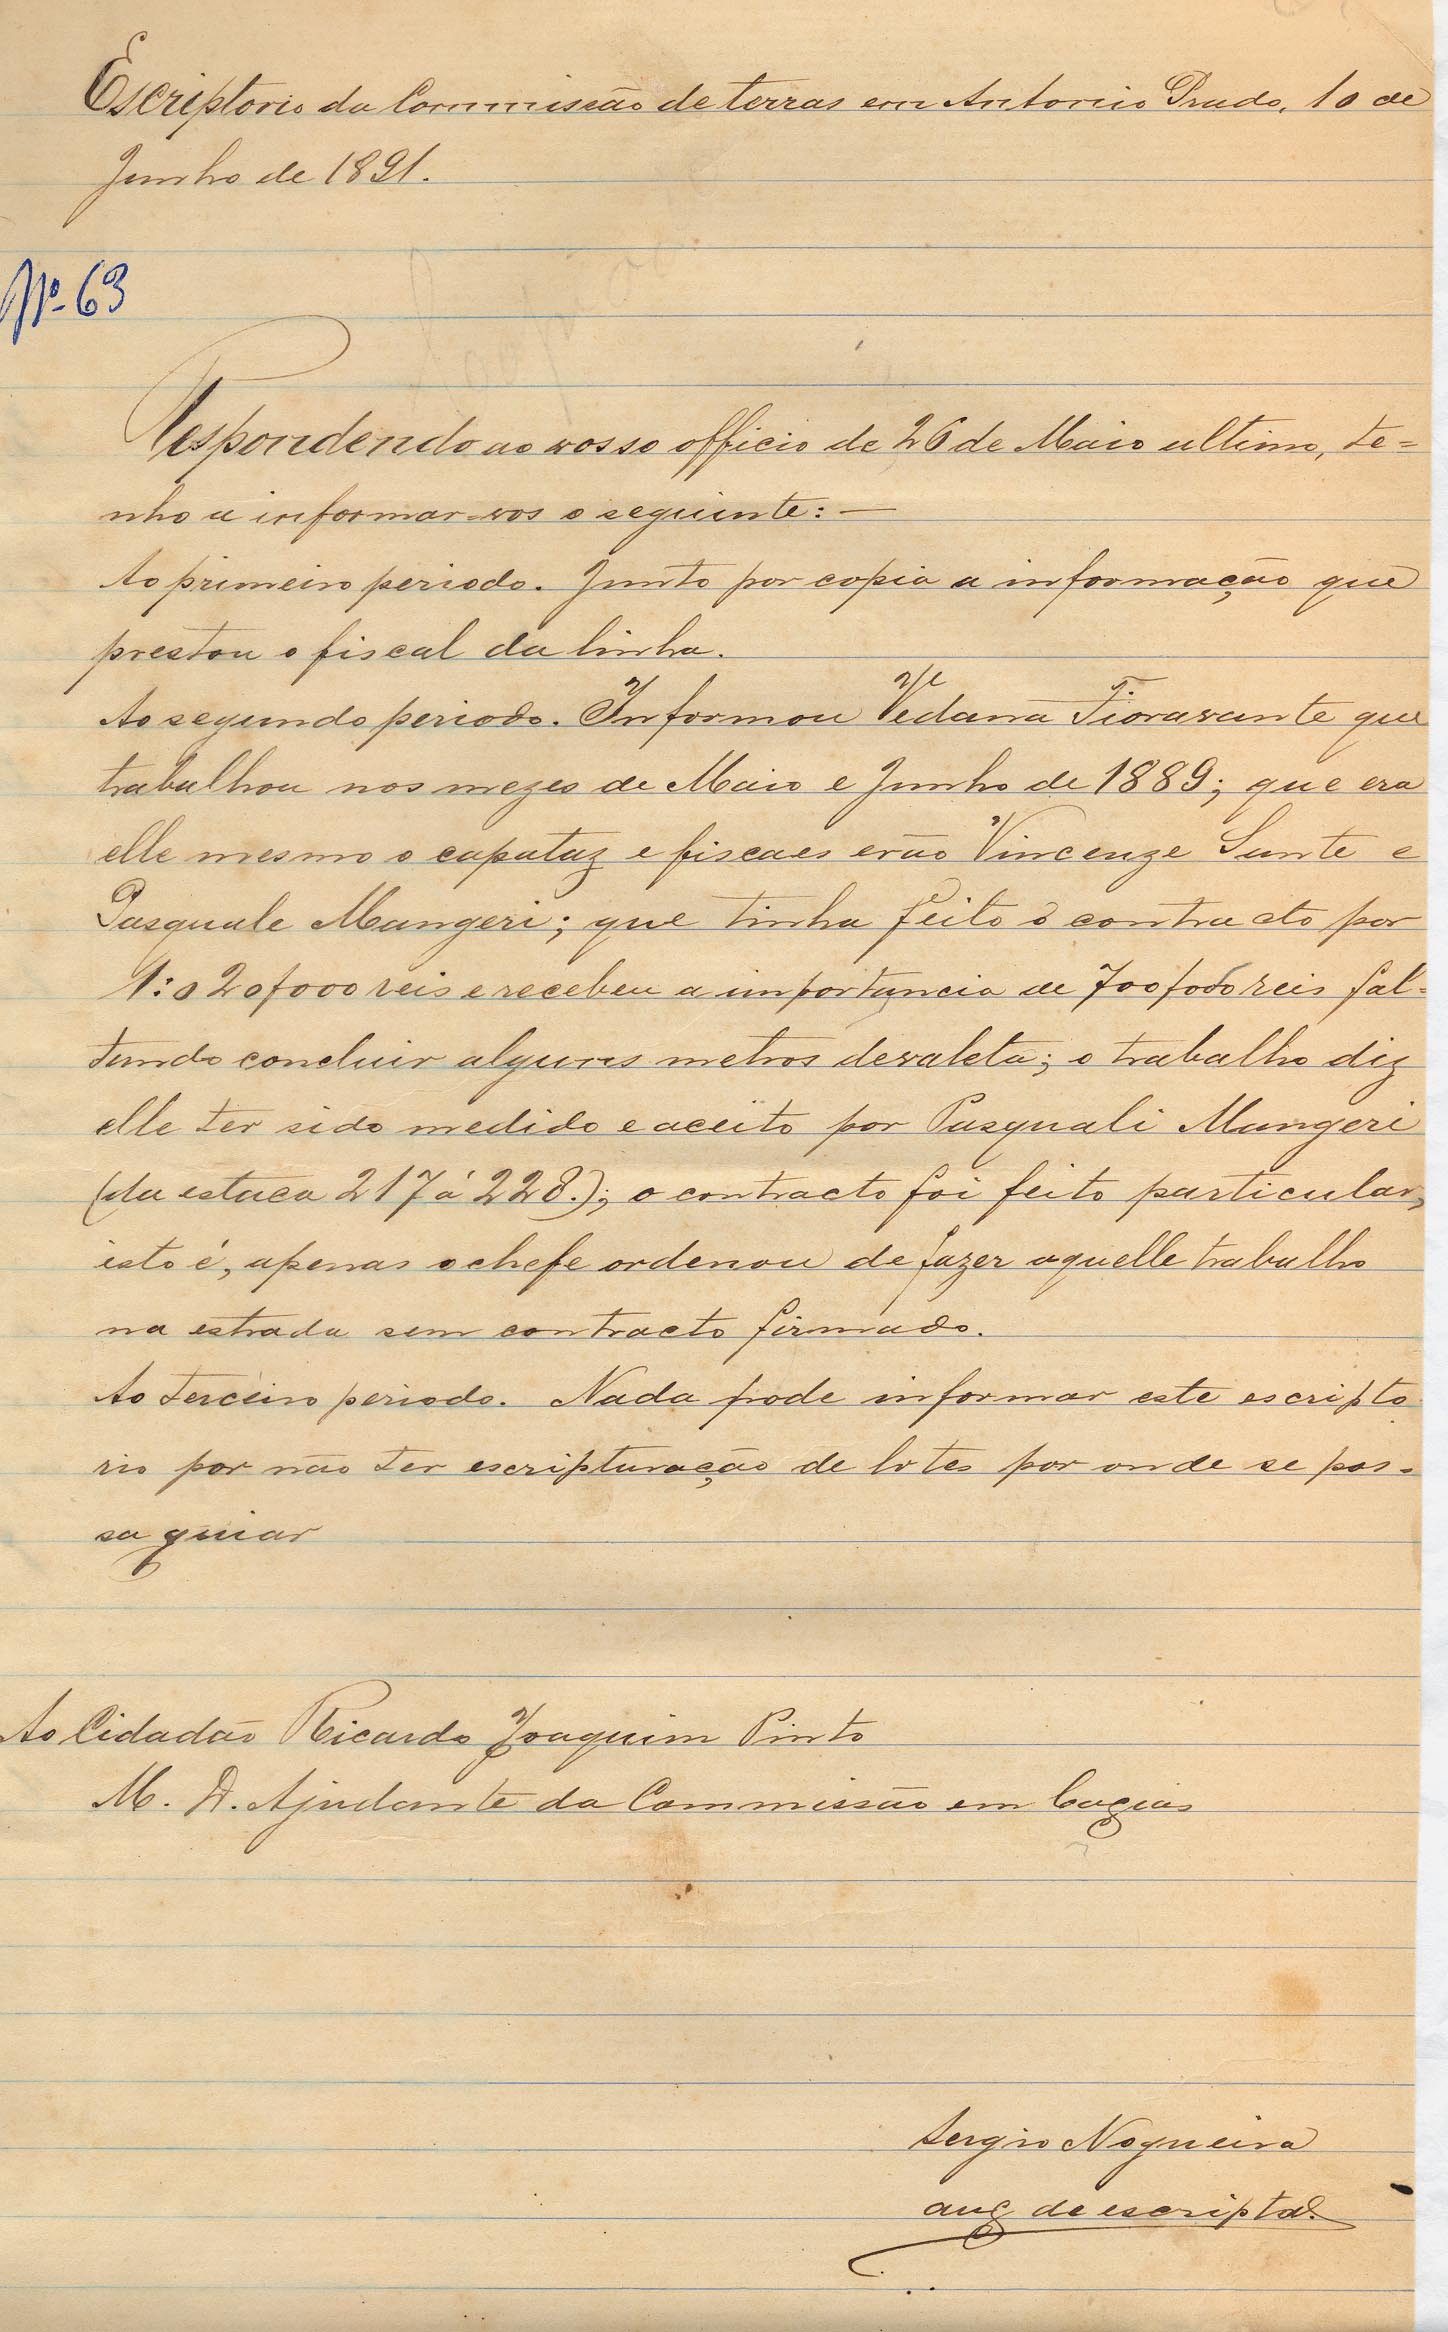 Escriptorio da Commissão de terras em Antonio Prado, 10 de
Junho de 1891.
Nº 63
Respondendo ao vosso officio de 26 de Maio ultimo, te=
nho a informar-vos o seguinte: —
Ao primeiro periodo. Junto por copia a informação que
prestou o fiscal da linha.
Ao segundo periodo. Informou Vedana Fioravante que
trabalhou nos mezes de Maio e Junho de 1889; que era
elle mesmo o capataz e fiscaes erão Vincenze Sante e
Pasquale Mangeri; que tinha feito o contracto por
1:020$000 reis e recebeu a importancia de 700$000 reis fal=
tando concluir alguns metros de valeta; o trabalho diz
elle ter sido medido e aceito por Pasquali Mangeri
(da estaca 217 á 228.); o contracto foi feito particular,
isto é, apenas o chefe ordenou de fazer aquelle trabalho
na estrada sem contracto firmado.
Ao terceiro periodo. Nada pode informar este escripto
rio por não ter escripturação de lotes por onde se pos=
sa guiar
Ao Cidadão Ricardo Joaquim Pinto
M. D. Ajudante da Commissão em Caxias
Sergio Nogueira
aux de escripta.